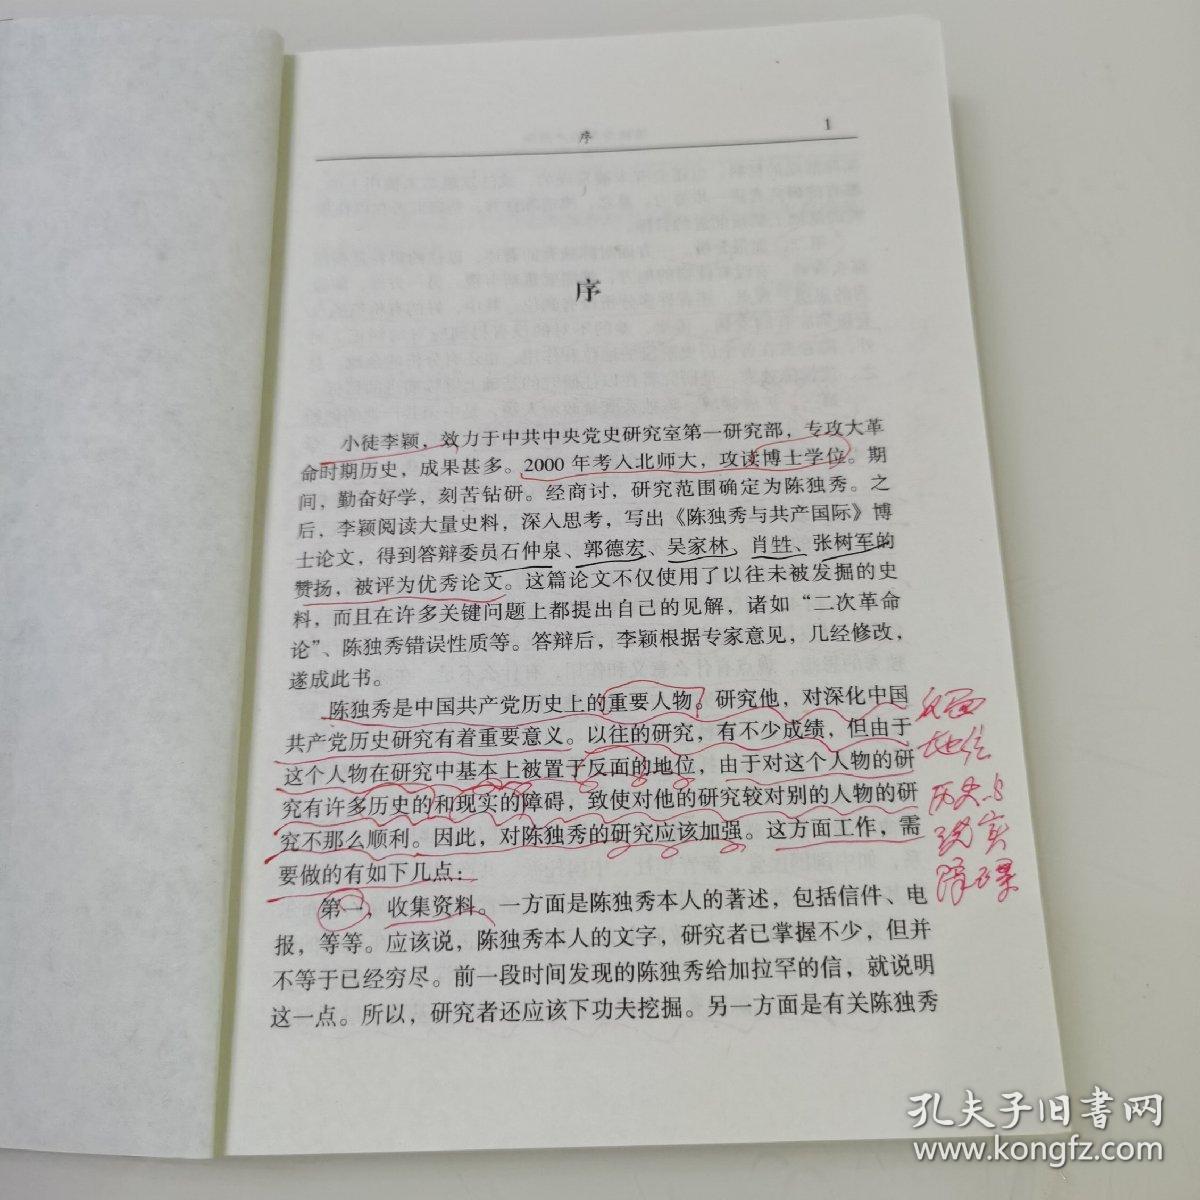 序
1
序
小徒李颖，效力于中共中央党史研究室第一研究部，专攻大革
命时期历史，成果甚多。2000年考入北师大，攻读博士学位。期
间，勤奋好学，刻苦钻研。经商讨，研究范围确定为陈独秀。之
后，李颖阅读大量史料，深入思考，写出《陈独秀与共产国际》博
士论文，得到答辩委员石仲泉、郭德宏、吴家林、肖甡、张树军的
赞扬，被评为优秀论文。这篇论文不仅使用了以往未被发掘的史
料，而且在许多关键问题上都提出自己的见解，诸如“二次革命
论”、陈独秀错误性质等。答辩后，李颖根据专家意见，几经修改，
遂成此书。
陈独秀是中国共产党历史上的重要人物。研究他，对深化中国
共产党历史研究有着重要意义。以往的研究，有不少成绩，但由于
这个人物在研究中基本上被置于反面的地位，由于对这个人物的研
究有许多历史的和现实的障碍，致使对他的研究较对别的人物的研
究不那么顺利。因此，对陈独秀的研究应该加强。这方面工作，需
要做的有如下几点：
第一，收集资料。一方面是陈独秀本人的著述，包括信件、电
报，等等。应该说，陈独秀本人的文字，研究者已掌握不少，但并
不等于已经穷尽。前一段时间发现的陈独秀给加拉罕的信，就说明
这一点。所以，研究者还应该下功夫挖掘。另一方面是有关陈独秀
反面
地位
历史与
现实
障碍
孔夫子旧书网
www.kongfz.com